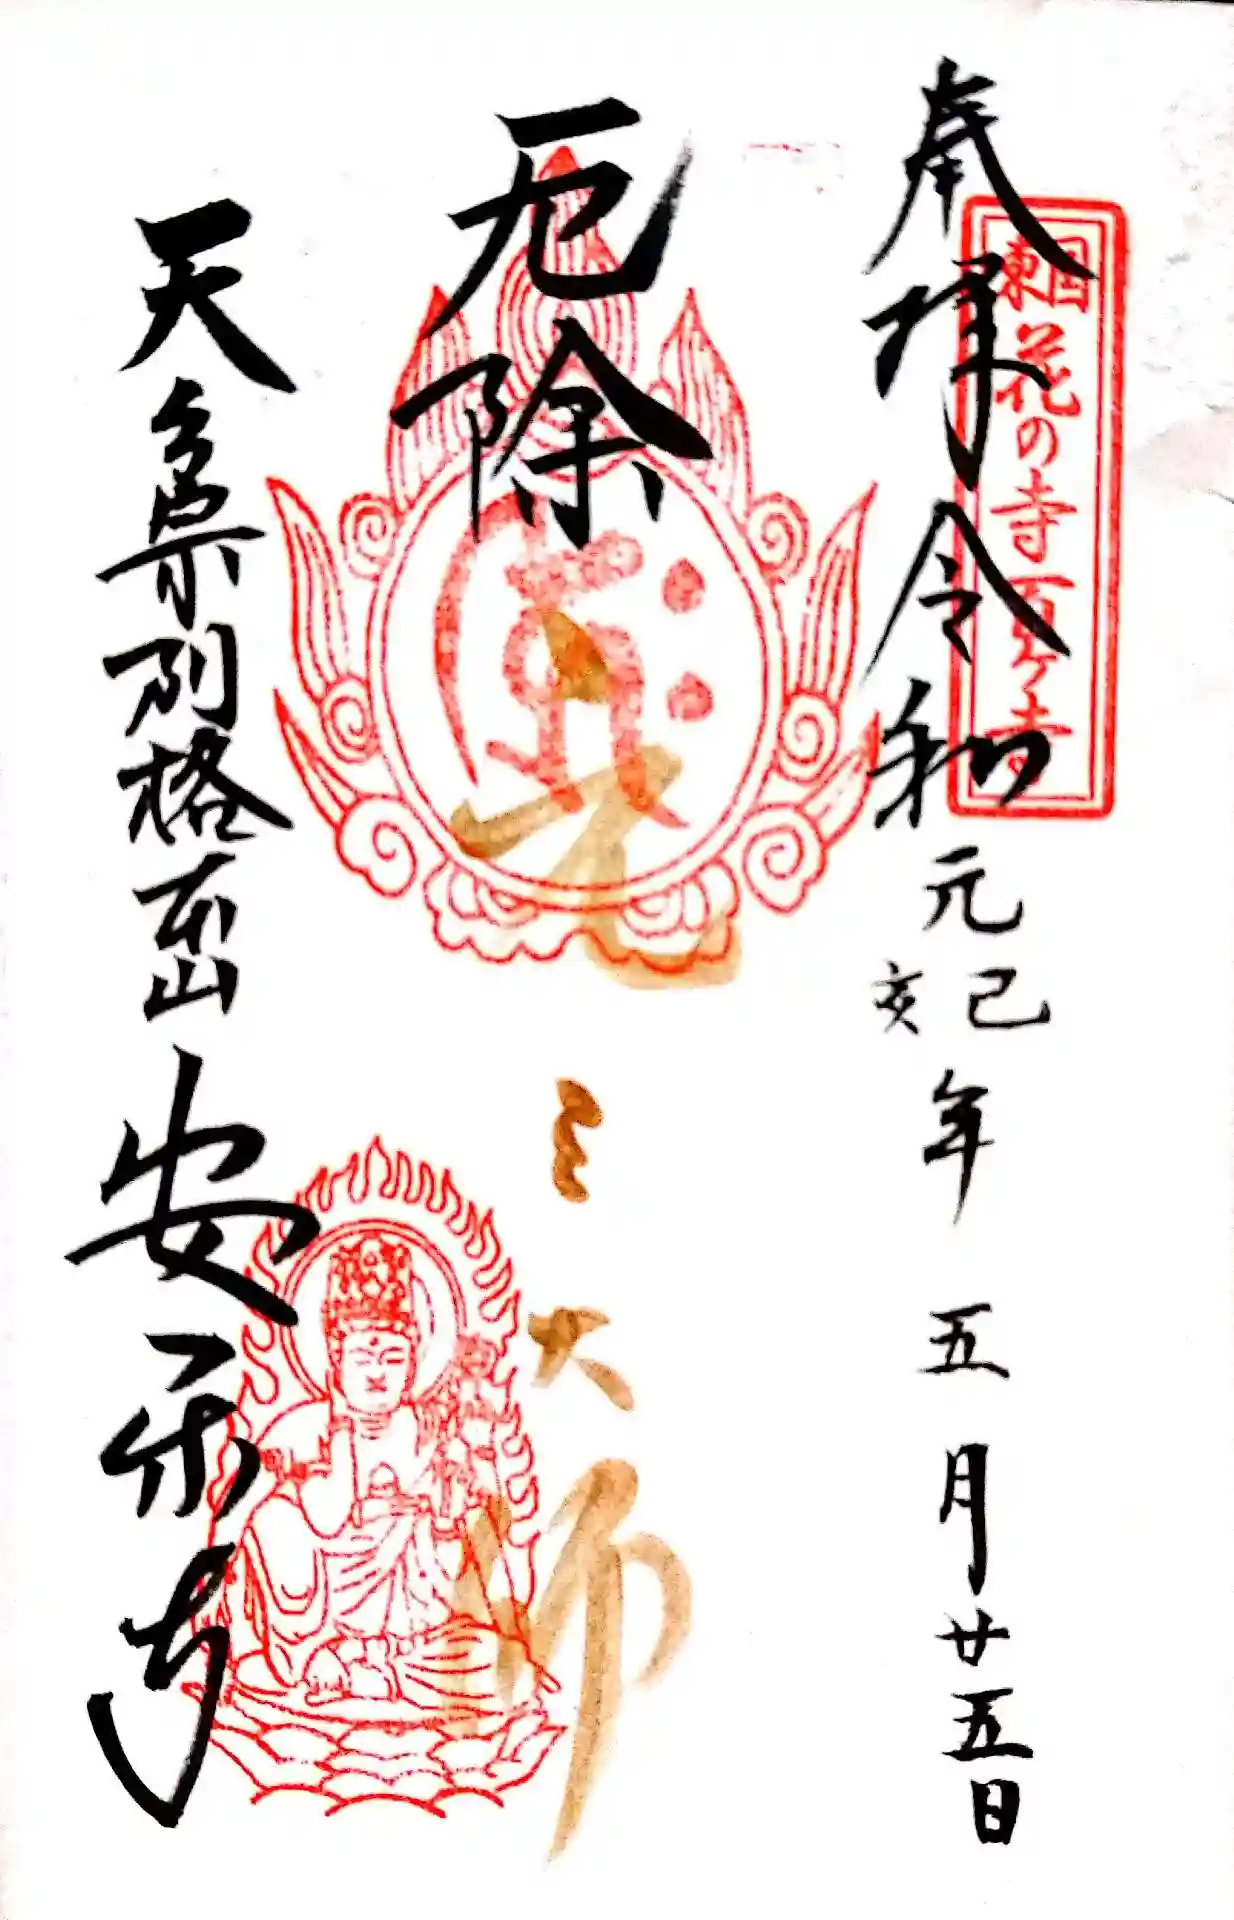 奉拝 令和元己亥年 五月廿五日
東国花の寺百ヶ寺
厄除 元三大師
天台宗別格本山 安楽寺